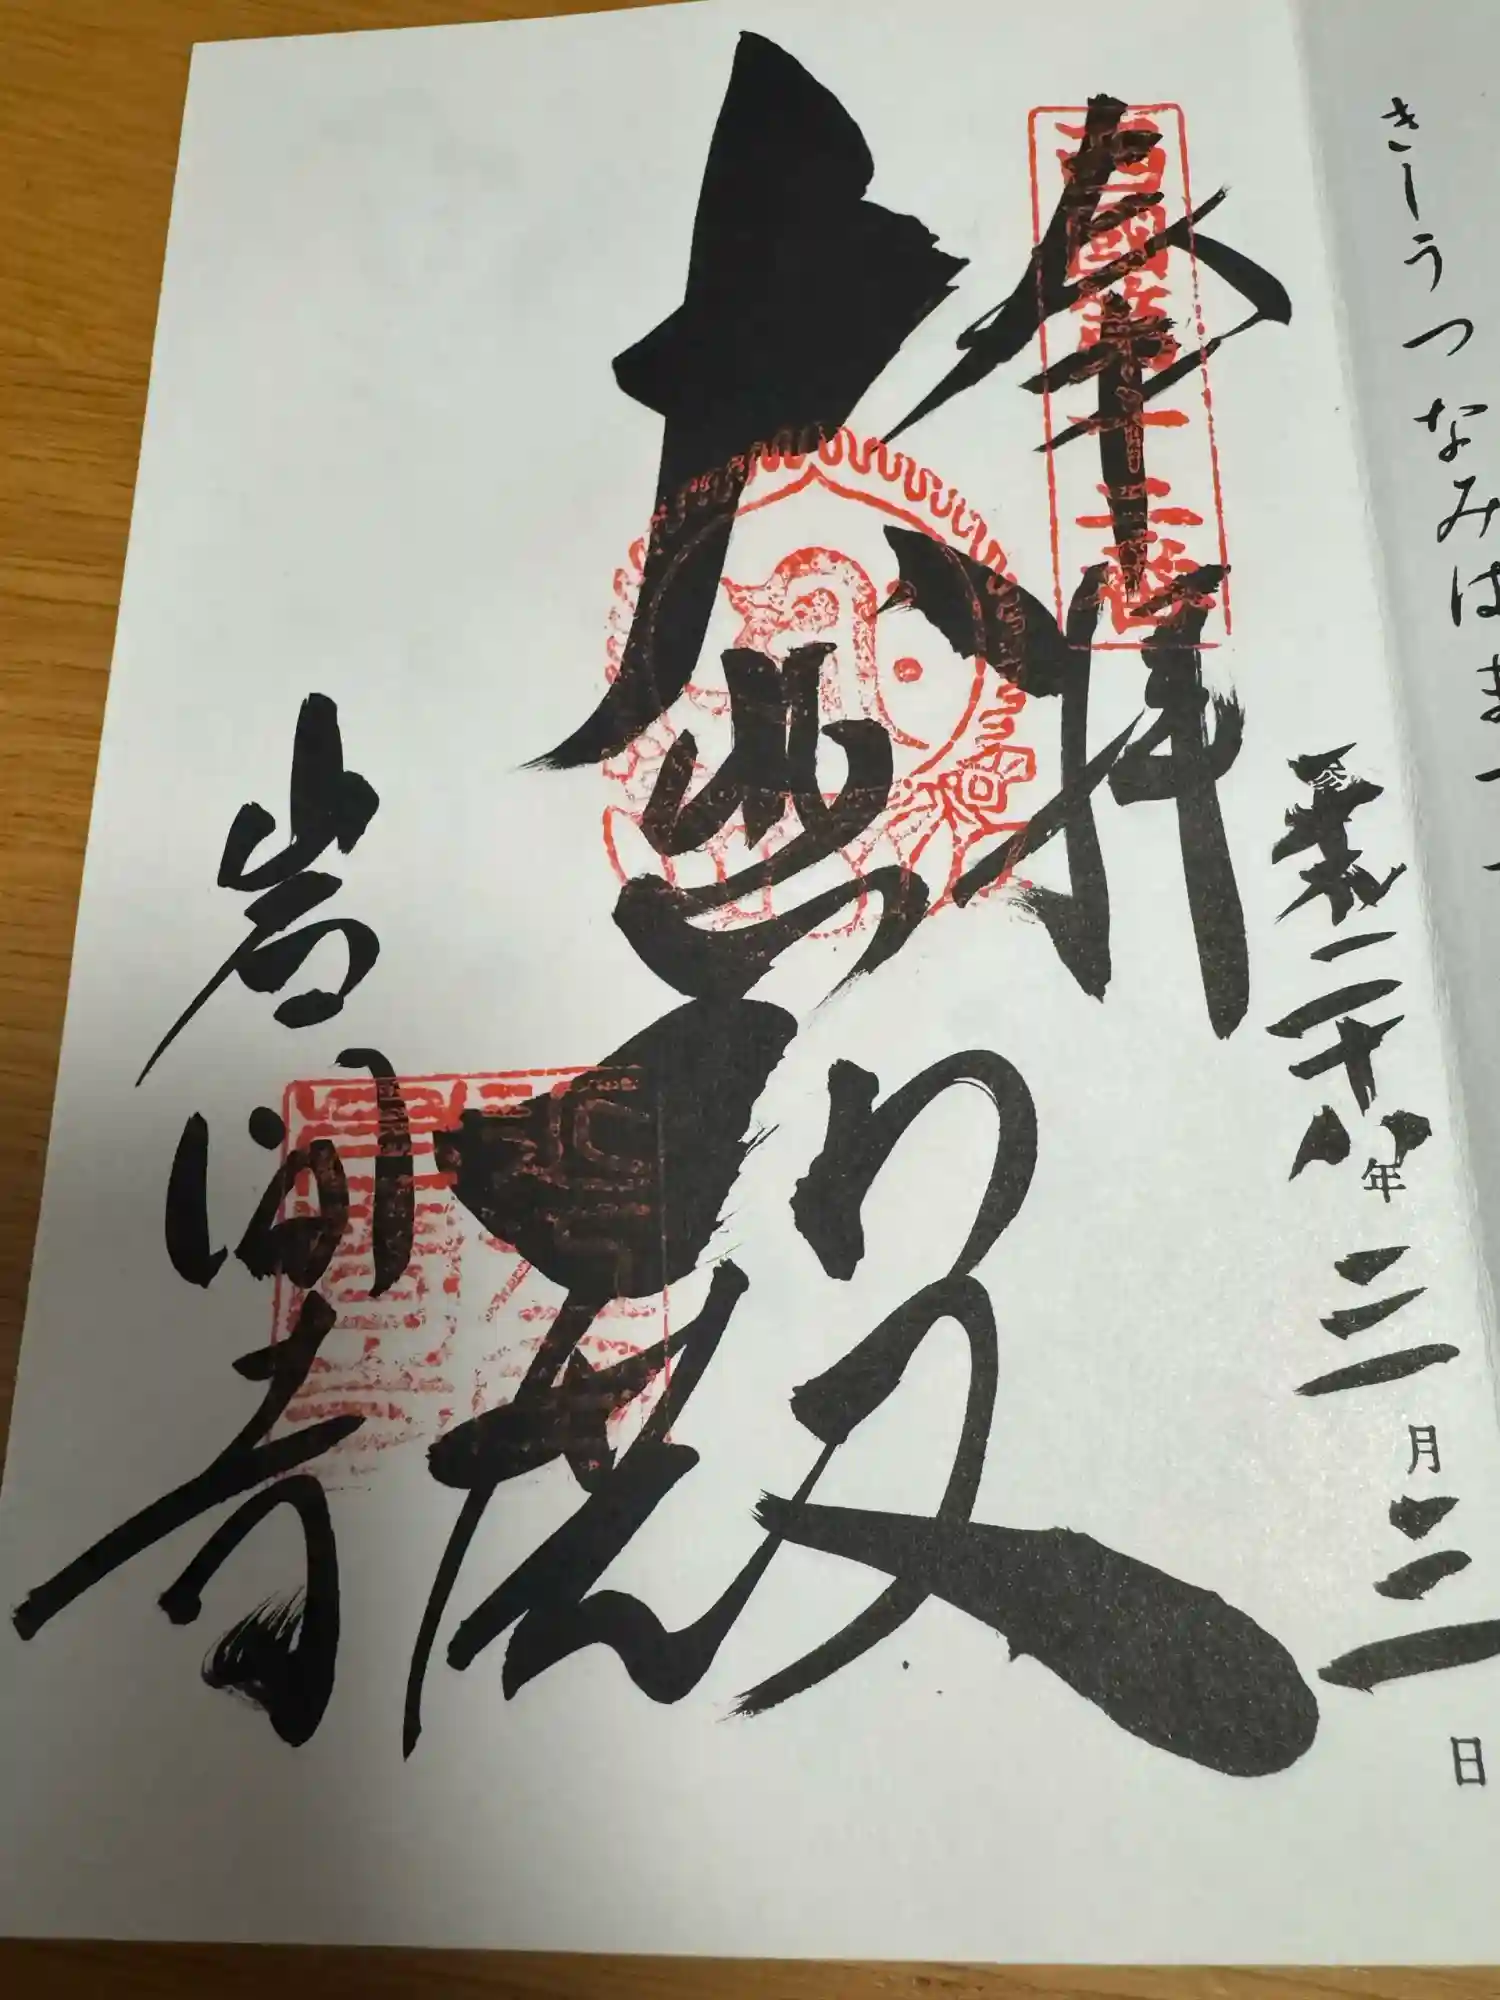 きしうつなみはまつ
二十八年三月三日
奉拝
西國第十二番
大悲殿
岩間寺